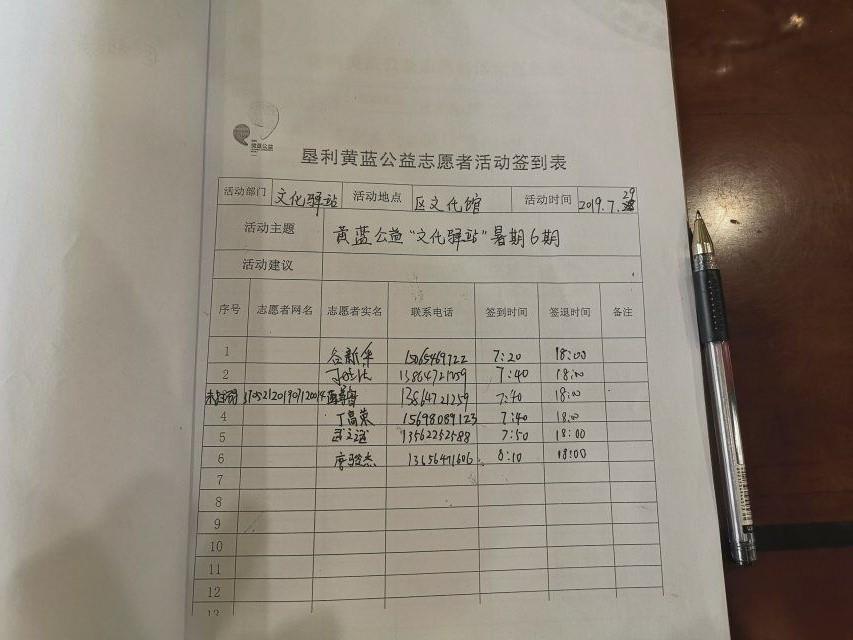 黄蓝公益
垦利黄蓝公益志愿者活动签到表
活动部门 文化驿站 活动地点 区文化馆 活动时间 2019.7.29
活动主题 黄蓝公益“文化驿站”暑期6期
活动建议
序号 志愿者网名 志愿者实名 联系电话 签到时间 签退时间 备注
1 15065469722 7:20 18:00
2 13864721259 7:40 18:00
13864721259 7:40 18:00
4 丁昌荣 15698089123 7:40 18:00
5 13562252588 7:50 18:00
6 13656471606 8:10 18:00
7
8
9
10
11
12
13